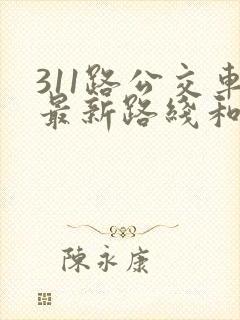 311路公交車
最新路綫和
陳永康